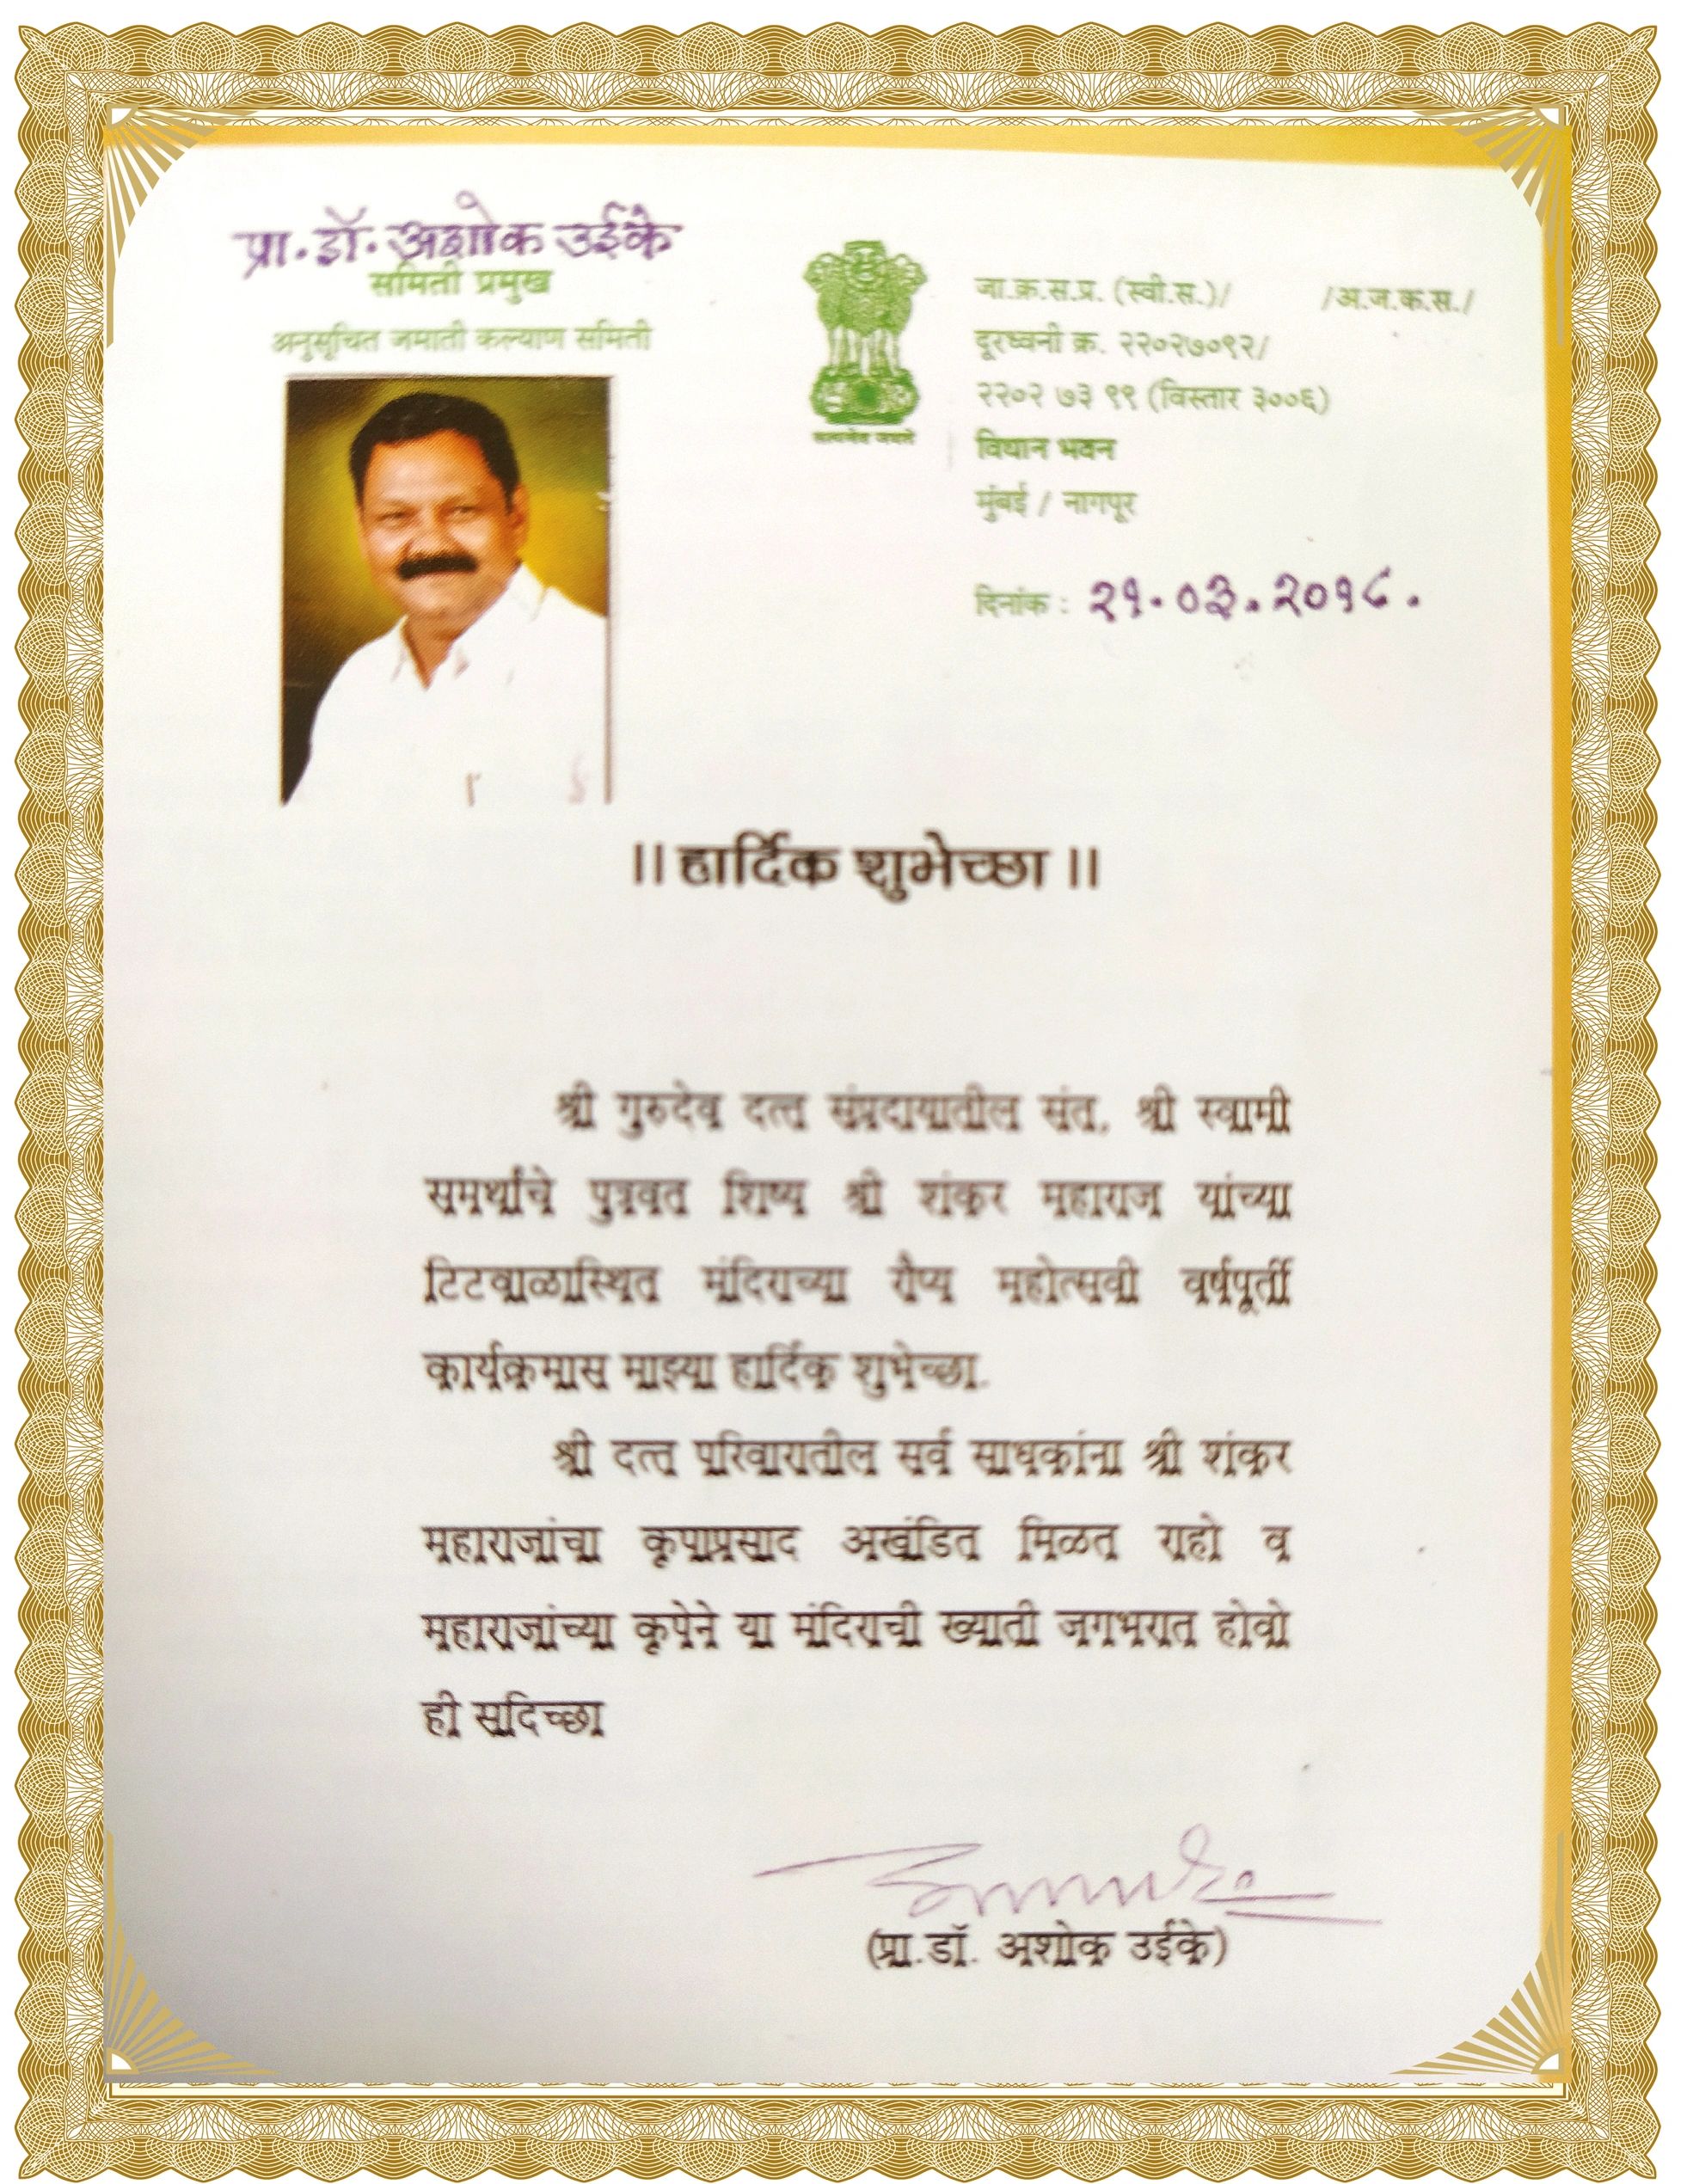 प्रा. डॉ. अशोक उईके
समिती प्रमुख
अनुसूचित जमाती कल्याण समिती
सत्यमेव जयते
जा.क्र.स.प्र. (स्वी.स.)/ /अ.ज.क.स./
दूरध्वनी क्र. २२०२७०९२/
२२०२ ७३ ९९ (विस्तार ३००६)
विधान भवन
मुंबई / नागपूर
दिनांक : २१.०३.२०१८.
।। हार्दिक शुभेच्छा ।।
श्री गुरुदेव दत्त संप्रदायातील संत, श्री स्वामी
समर्थांचे पुत्रवत शिष्य श्री शंकर महाराज यांच्या
टिटवाळास्थित मंदिराच्या रौप्य महोत्सवी वर्षपूर्ती
कार्यक्रमास माझ्या हार्दिक शुभेच्छा.
श्री दत्त परिवारातील सर्व साधकांना श्री शंकर
महाराजांचा कृपाप्रसाद अखंडित मिळत राहो व
महाराजांच्या कृपेने या मंदिराची ख्याती जगभरात होवो
ही सदिच्छा
(प्रा.डॉ. अशोक उईके)